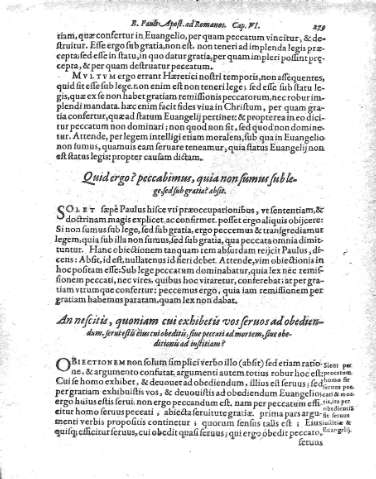 B. Pauli Apost. ad Romanos. Cap. VI. 279
tiam, quæ confertur in Euangelio, per quam peccatum vincitur, & de-
struitur. Esse ergo sub gratia, non est. non teneri ad implenda legis præ-
cepta; sed esse in statu, in quo datur gratia, per quam impleri possint præ-
cepta, & per quam destruatur peccatum.
MVLTVM ergo errant Hæretici nostri temporis, non assequentes,
quid sit esse sub lege. non enim est non teneri lege; sed esse sub statu le-
gis, quæ ex se non habet gratiam remissionis peccatorum, nec robur im-
plendi mandata. hæc enim facit fides viua in Christum, per quam gra-
tia confertur, quæ ad statum Euangelij pertinet: & propterea in eo dici-
tur peccatum non dominari; non quod non sit, sed quod non domine-
tur. Attende, per legem intelligi etiam moralem, sub qua in Euangelio
non sumus, quamuis eam seruare teneamur, quia status Euangelij non
est status legis: propter causam dictam.
Quid ergo? peccabimus, quia non sumus sub le-
ge, sed sub gratia? absit.
SOLET sæpè Paulus hisce vti præoccupationibus, vt sententiam, &
doctrinam magis explicet, ac confirmet. posset ergo aliquis obijcere:
Si non sumus sub lege, sed sub gratia, ergo peccemus & transgrediamur
legem, quia sub illa non sumus, sed sub gratia, qua peccata omnia dimit-
tuntur. Hanc obiectionem tanquam rem absurdam reijcit Paulus, di-
cens: Absit, id est, nullatenus id fieri debet. Attende, vim obiectionis in
hoc positam esse: Sub lege peccatum dominabatur, quia lex nec remis-
sionem peccati, nec vires, quibus hoc vitaretur, conferebat: at per gra-
tiam vtrumque confertur: peccemus ergo, quia iam remissionem per
gratiam habemus paratam, quam lex non dabat.
An nescitis, quoniam cui exhibetis vos seruos ad obedien-
dum, serui estis eius cui obeditis, siue peccati ad mortem, siue obe-
ditionis ad iustitiam?
OBIECTIONEM non solum simplici verbo illo (absit) sed etiam ratio-
ne, & argumento confutat. argumenti autem totius robur hoc est:
Cui se homo exhibet, & deuouet ad obediendum, illius est seruus; sed
per gratiam exhibuistis vos, & deuouistis ad obediendum Euangelio:
ergo huius estis serui. non ergo peccandum est. nam per peccatum effi-
citur homo seruus peccati, abiecta seruitute gratiæ. prima pars argu-
menti verbis propositis continetur; quorum sensus talis est; Eius
quisq; efficitur seruus, cui obedit quasi seruus; qui ergo obedit peccato,
seruus
Sicut per
peccatum
homo fit
seruus pec-
cati, ita per
obedientiã
fit seruus
iustitiæ &
Euangelij.